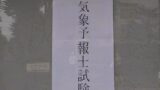 気象予報士試験